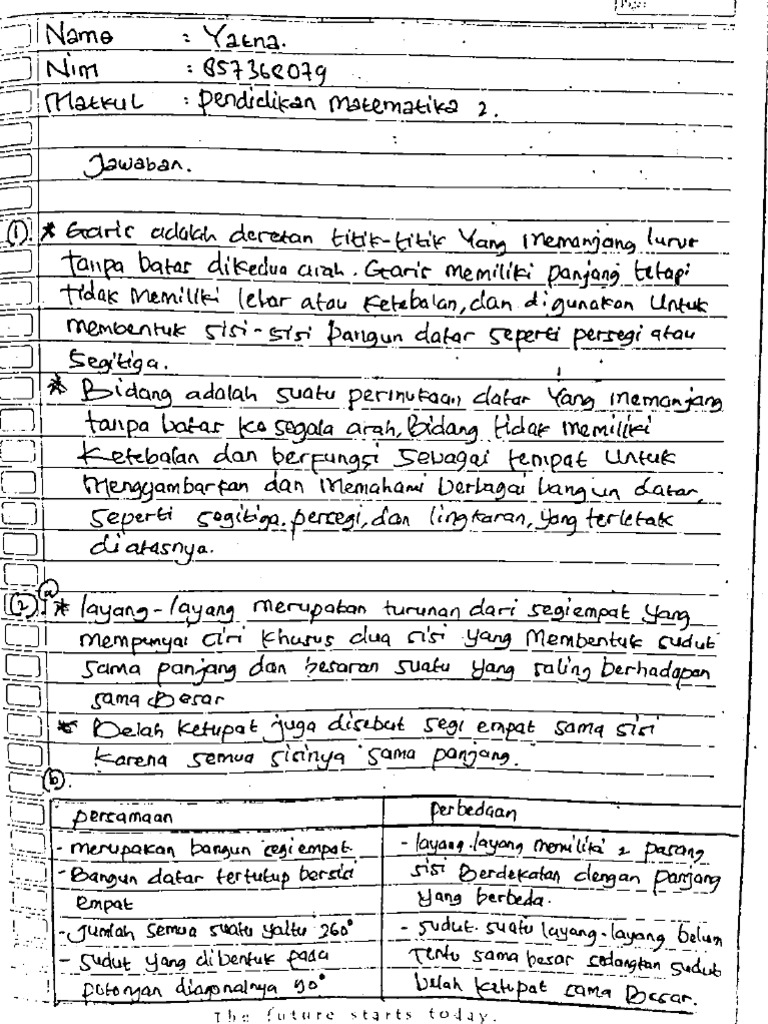 Name : Yatna.
Nim : 857368079
Matkul : Pendidikan Matematika 2.
Jawaban.
1. * Garis adalah deretan titik-titik Yang memanjang lurus
tanpa batas dikedua arah. Garis memiliki panjang tetapi
tidak memiliki lebar atau ketebalan, dan digunakan Untuk
membentuk sisi-sisi bangun datar seperti persegi atau
Segitiga.
* Bidang adalah suatu permukaan datar Yang memanjang
tanpa batas ke segala arah, Bidang tidak memiliki
Ketebalan dan berfungsi sebagai tempat Untuk
Menggambarkan dan memahami berbagai bangun datar,
seperti segitiga, persegi, dan lingkaran, yang terletak
diatasnya.
2. a * layang-layang merupakan turunan dari segiempat yang
mempunyai ciri khusus dua sisi yang Membentuk sudut
sama panjang dan besaran suatu yang saling berhadapan
sama Besar
* Belah ketupat juga disebut segi empat sama sisi
karena semua sisinya sama panjang.
b.
persamaan | perbedaan
- merupakan bangun segi empat. | - layang-layang memiliki 2 pasang
- Bangun datar tertutup bersisi | sisi Berdekatan dengan panjang
empat | yang berbeda.
- Jumlah semua suatu yaitu 360° | - sudut-suatu layang-layang belum
- sudut yang dibentuk pada | Tentu sama besar sedangkan sudut
potongan diagonalnya 90° | belah ketupat sama Besar.
The future starts today.